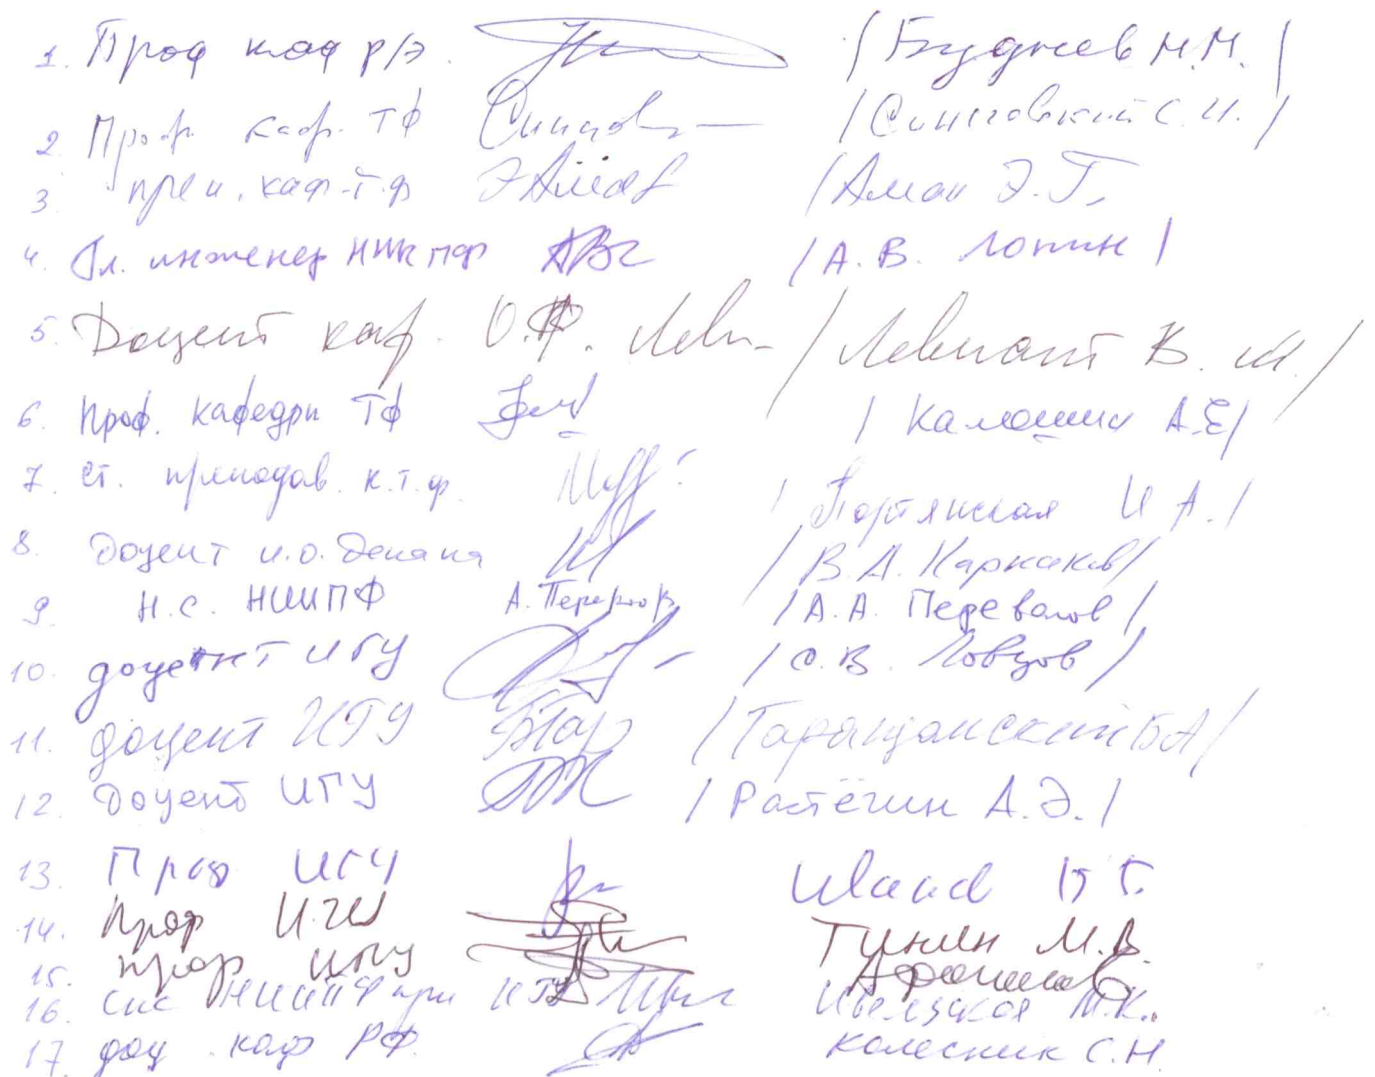 1. Проф каф р/э. /Буднев Н.М./
2. Проф. каф. ТФ Синегов /Синеговский С.И./
3. преп. каф. т.ф /Аман Э.Г.
4. Гл. инженер НИИ ПФ /А.В. Лопин/
5. Доцент каф. О.Ф. Леви- /Левиант В.М./
6. Проф. кафедри ТФ /Калошин А.Е/
7. ст. преподав. к.т.ф. /Портянская И А./
8. Доцент и.о. декана /В.А. Карнаков/
9. Н.С. НИИПФ А. Перевалов /А.А. Перевалов/
10. доцент ИГУ /С.В. Ловцов/
11. доцент ИГУ БТар /Таращанский БА/
12. Доцент ИГУ /Растёгин А.Э./
13. Проф ИГУ
14. Проф ИГУ М.В.
15. проф ИГУ Афанасьев
16. снс НИИПФ при ИГУ М.К.
17. доц. каф РФ. Колесник С.Н.